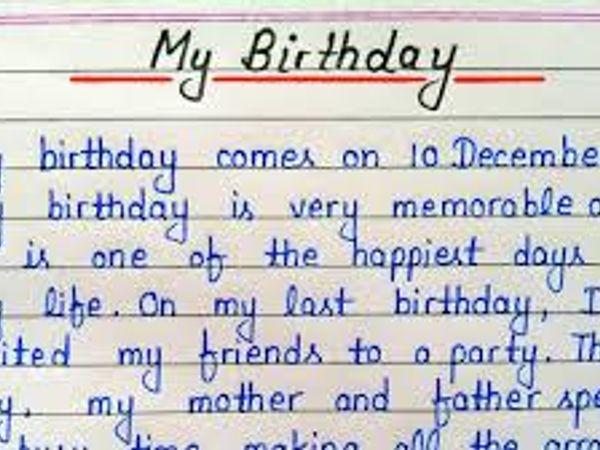 My Birthday
y birthday comes on 10 Decembe
y birthday is very memorable a
is one of the happiest days
y life. On my last birthday, I
ited my friends to a party. Th
y, my mother and father spe
busy time making all the arra